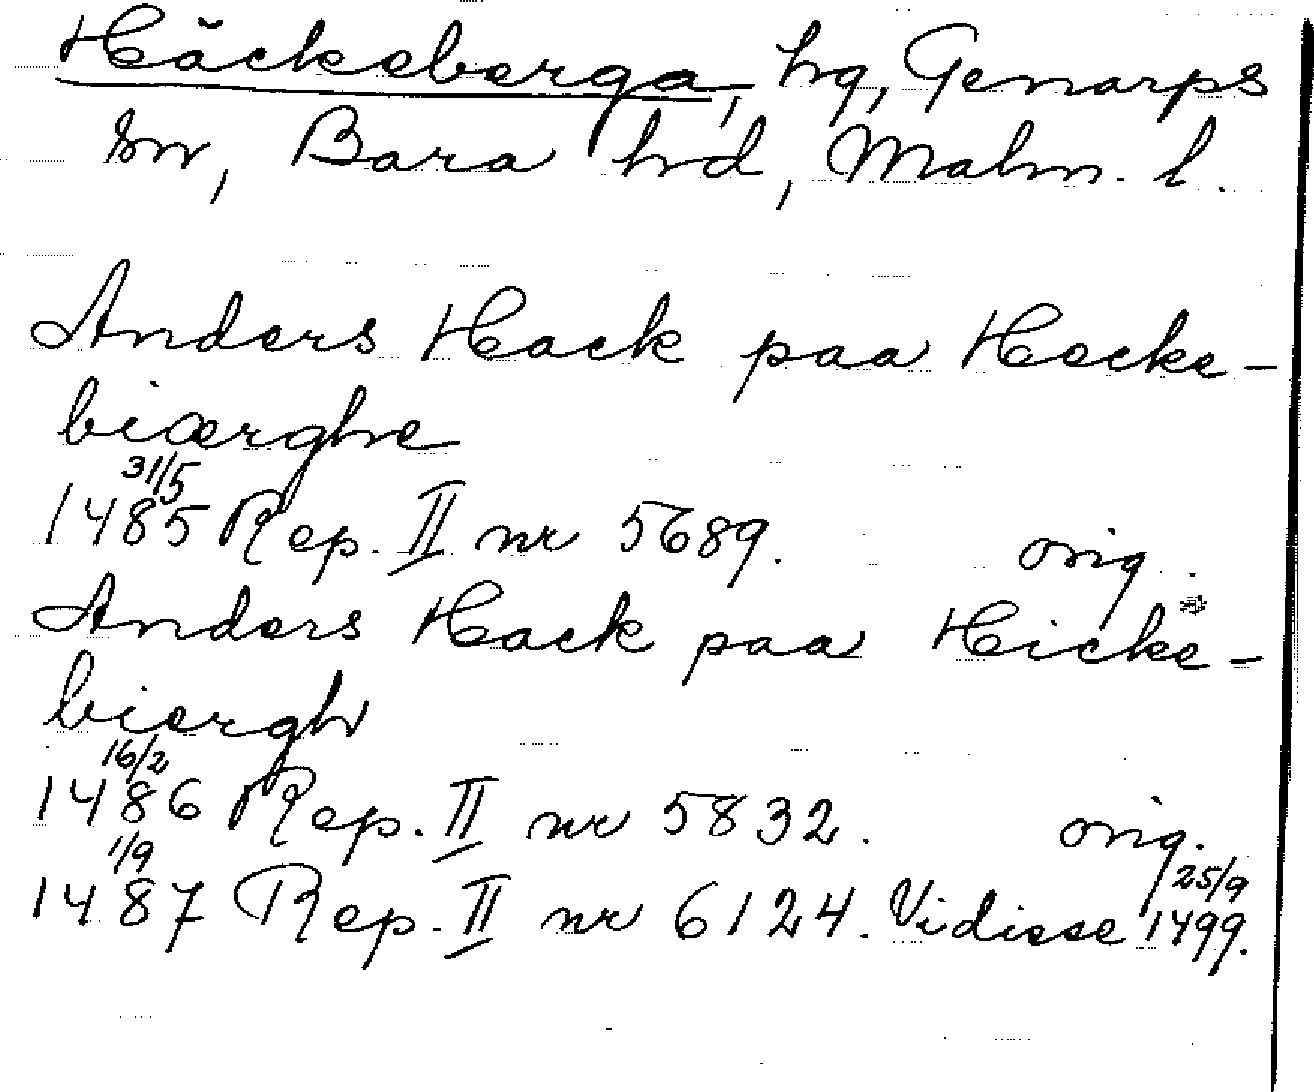 Häckeberga, hg, Genarps
sn, Bara hd, Malm. l.
Anders Hack paa Hecke-
biærghe
31/5
1485 Rep. II nr 5689. orig.
Anders Hack paa Hicke-
biergh
16/2
1486 Rep. II nr 5832. orig.
1/9 25/9
1487 Rep. II nr 6124. Vidisse 1499.